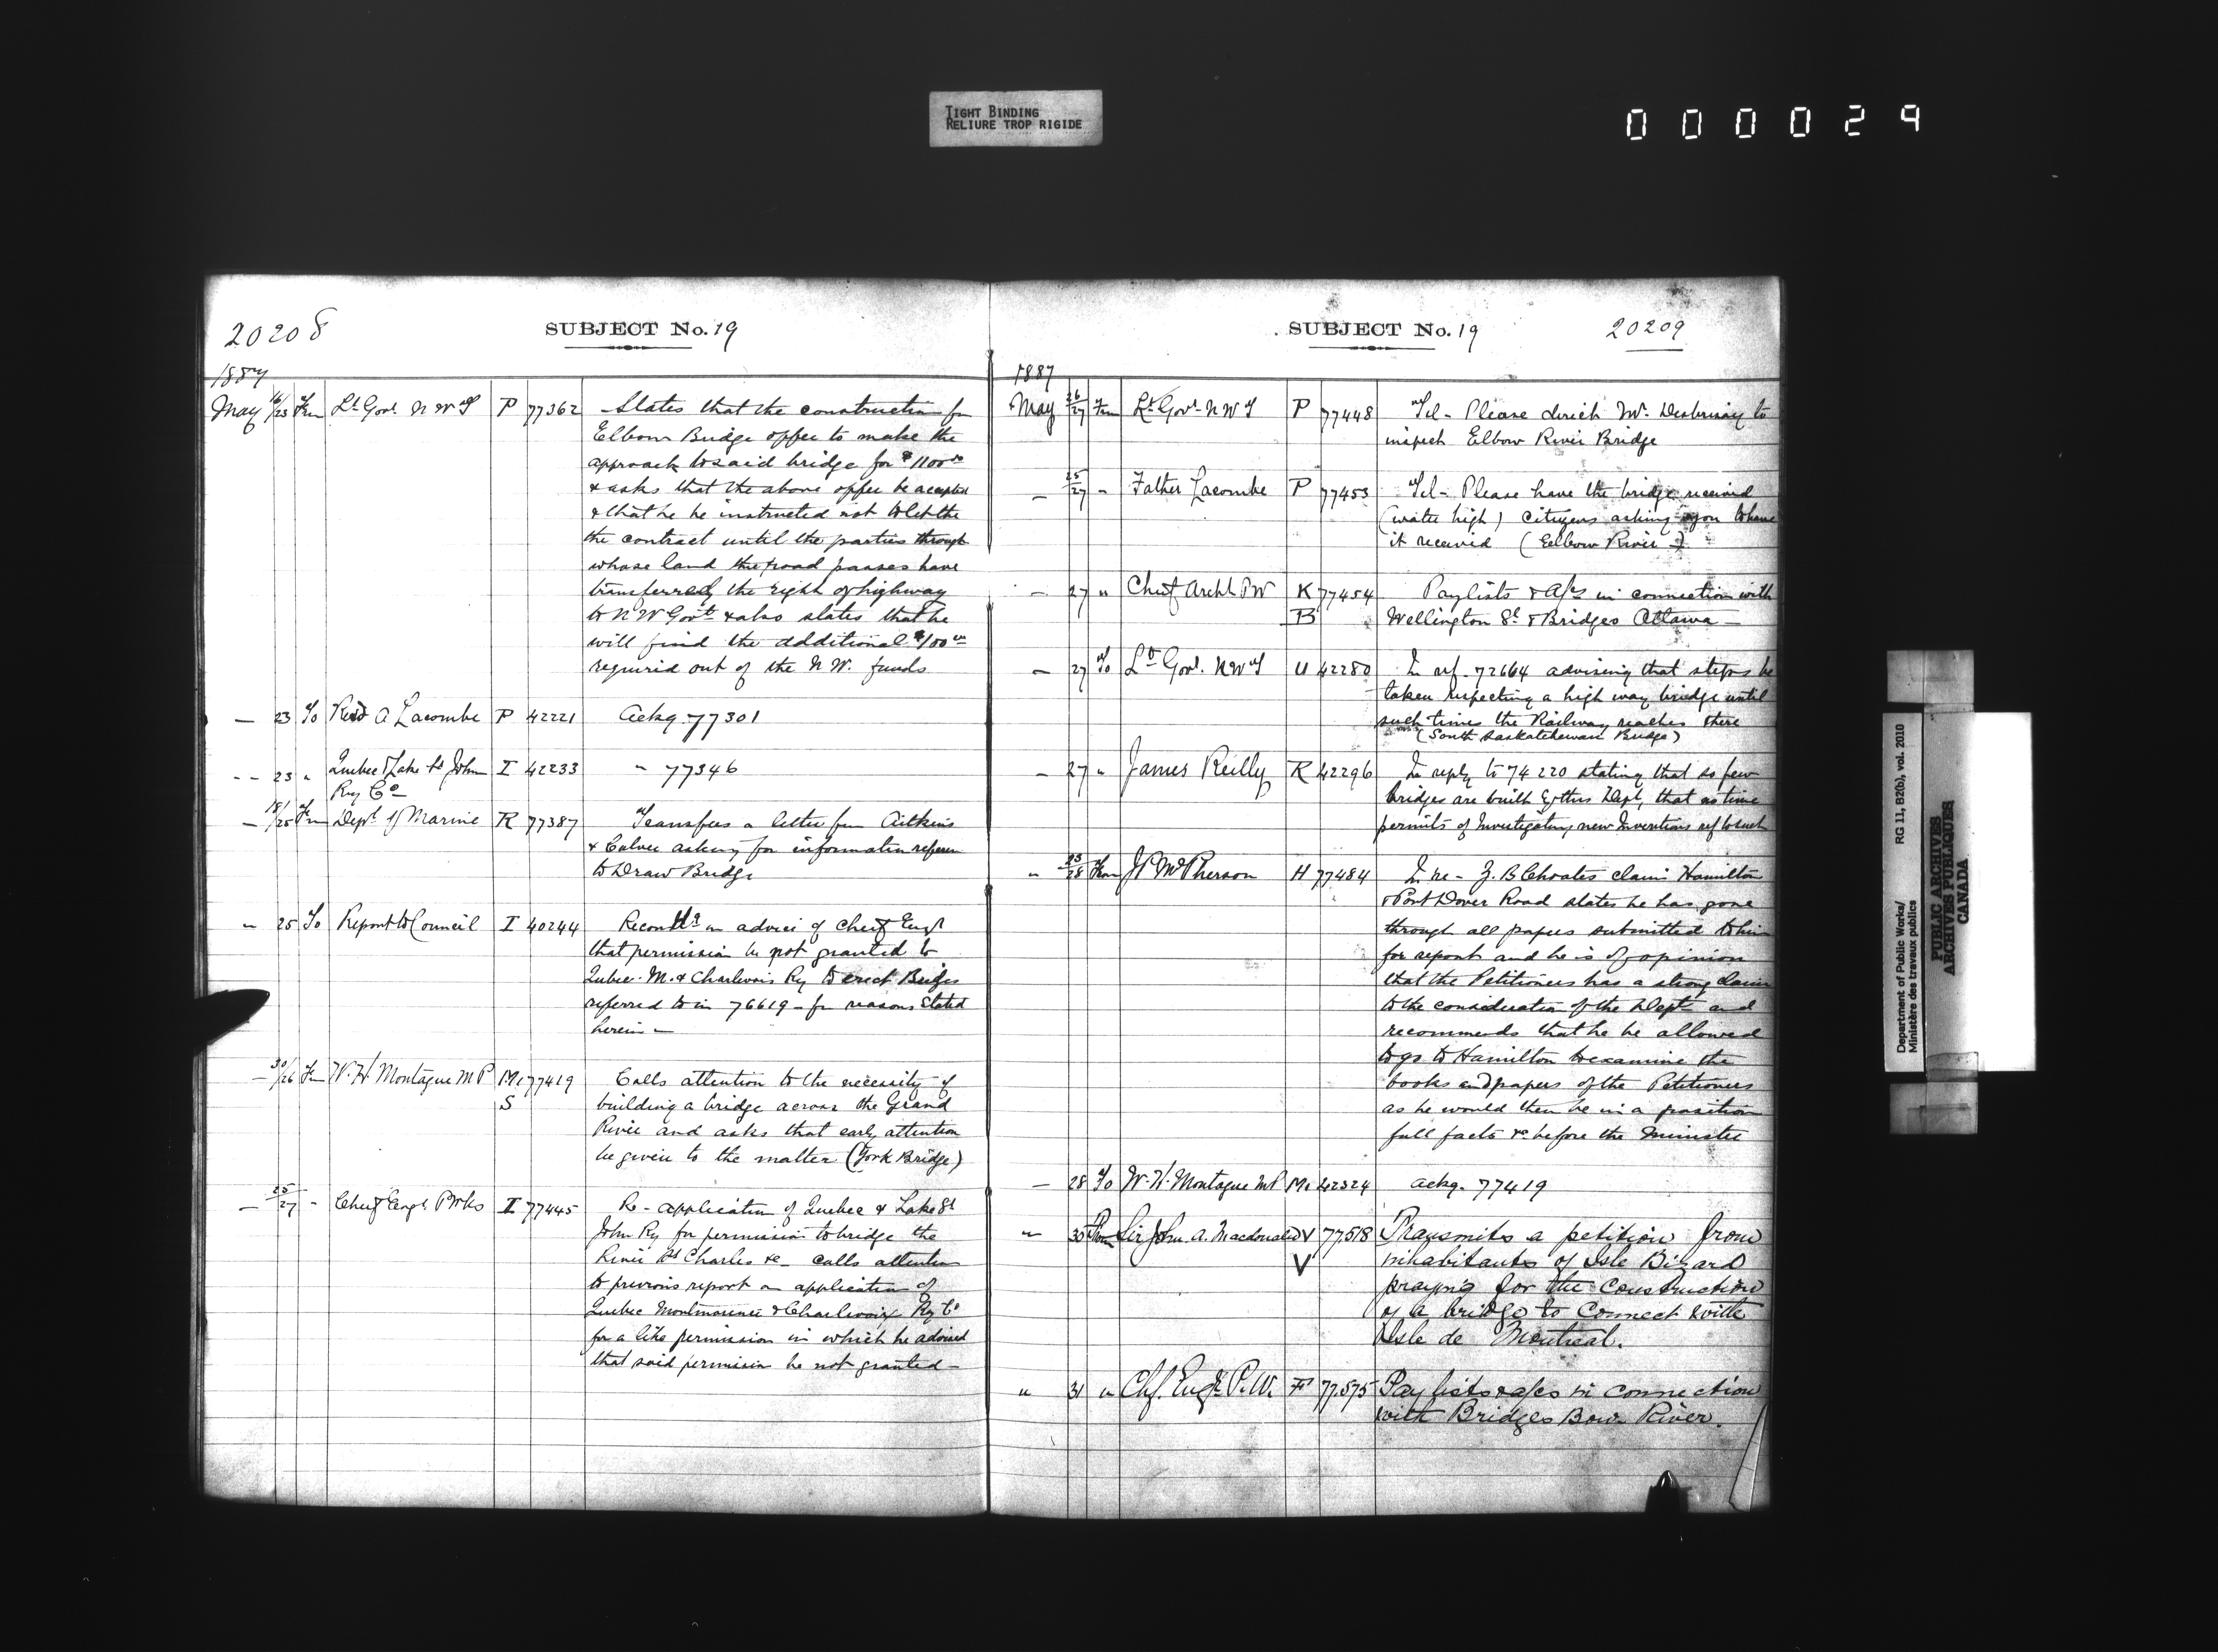 TIGHT BINDING
RELIURE TROP RIGIDE
000029
20208
SUBJECT No. 19
1887
May 16/23 Frm Lt Govr N W T P 77362 States that the construction for
Elbow Bridge offer to make the
approach to said bridge for $1100.00
& asks that the above offer be accepted
& that he be instructed not to let the
the contract until the parties through
whose land the road passes have
transferred the right of highway
to N W Govt & also states that he
will find the additional $100.00
required out of the N W. funds
— 23 To Revd A Lacombe P 42221 Ackg. 77301
-- 23 " Quebec & Lake St John I 42233 " 77346
Ry Co
— 18/25 Frm Dept of Marine R 77387 Transfers a letter from Aitkins
& Culver asking for information referen
to Draw Bridge
" 25 To Report to Council I 40244 on advice of Chief Engr
that permission be not granted to
Quebec M. & Charlevoix Ry to erect Bridges
referred to in 76619 - for reasons stated
herein —
— 30/26 Frm W. H Montague M P Mc 77419 Calls attention to the necessity of
S building a bridge across the Grand
River and asks that early attention
be given to the matter (York Bridge)
— 25/27 " Chief Engr P Wks I 77445 Re - application of Quebec & Lake St
John Ry for permission to bridge the
River St Charles &c - calls attention
to previous report on application of
Quebec Montmorenci & Charlevoix Ry Co
for a like permission in which he advised
that said permission be not granted -
SUBJECT No. 19
20209
1887
May 26/27 Frm Lt Govr N W T P 77448 Tel - Please direct Mr. Desbrisay to
inspect Elbow River Bridge
— 25/27 " Father Lacombe P 77453 Tel - Please have the bridge received
(water high) Citizens asking you to have
it received (Elbow River)
— 27 " Chief Archt P W K 77454 Paylists & A/cs in connection with
B Wellington St & Bridges Ottawa —
— 27 To Lt Govr. N W T U 42280 In ref. 72664 advising that steps be
taken respecting a high way bridge until
such times the Railway reaches there
(South Saskatchewan Bridge)
— 27 " James Reilly R 42296 In reply to 74220 stating that so few
bridges are built by this Dept, that no time
permits of Investigating new Inventions ref to such
" 23/28 Frm McPherson H 77484 In re - Z. B Choates claim Hamilton
& Port Dover Road states he has gone
through all papers submitted to him
for report and he is of opinion
that the Petitioners has a strong claim
to the consideration of the Dept and
recommends that he be allowed
to go to Hamilton to examine the
books and papers of the Petitioners
as he would then be in a position
full facts &c before the Minister
— 28 To W. H. Montague M P Mc 42324 ackg. 77419
" 30 From Sir John. A. Macdonald V 77518 Transmits a petition from
V inhabitants of Isle Bizard
praying for the Construction
of a bridge to Connect with
Isle de Montreal.
" 31 " Chf. Engr. P. W. F 77575 Pay lists & a/cs in connection
with Bridges Bow River.
Department of Public Works/
Ministère des travaux publics
RG 11, B2(b), vol. 2010
PUBLIC ARCHIVES
ARCHIVES PUBLIQUES
CANADA